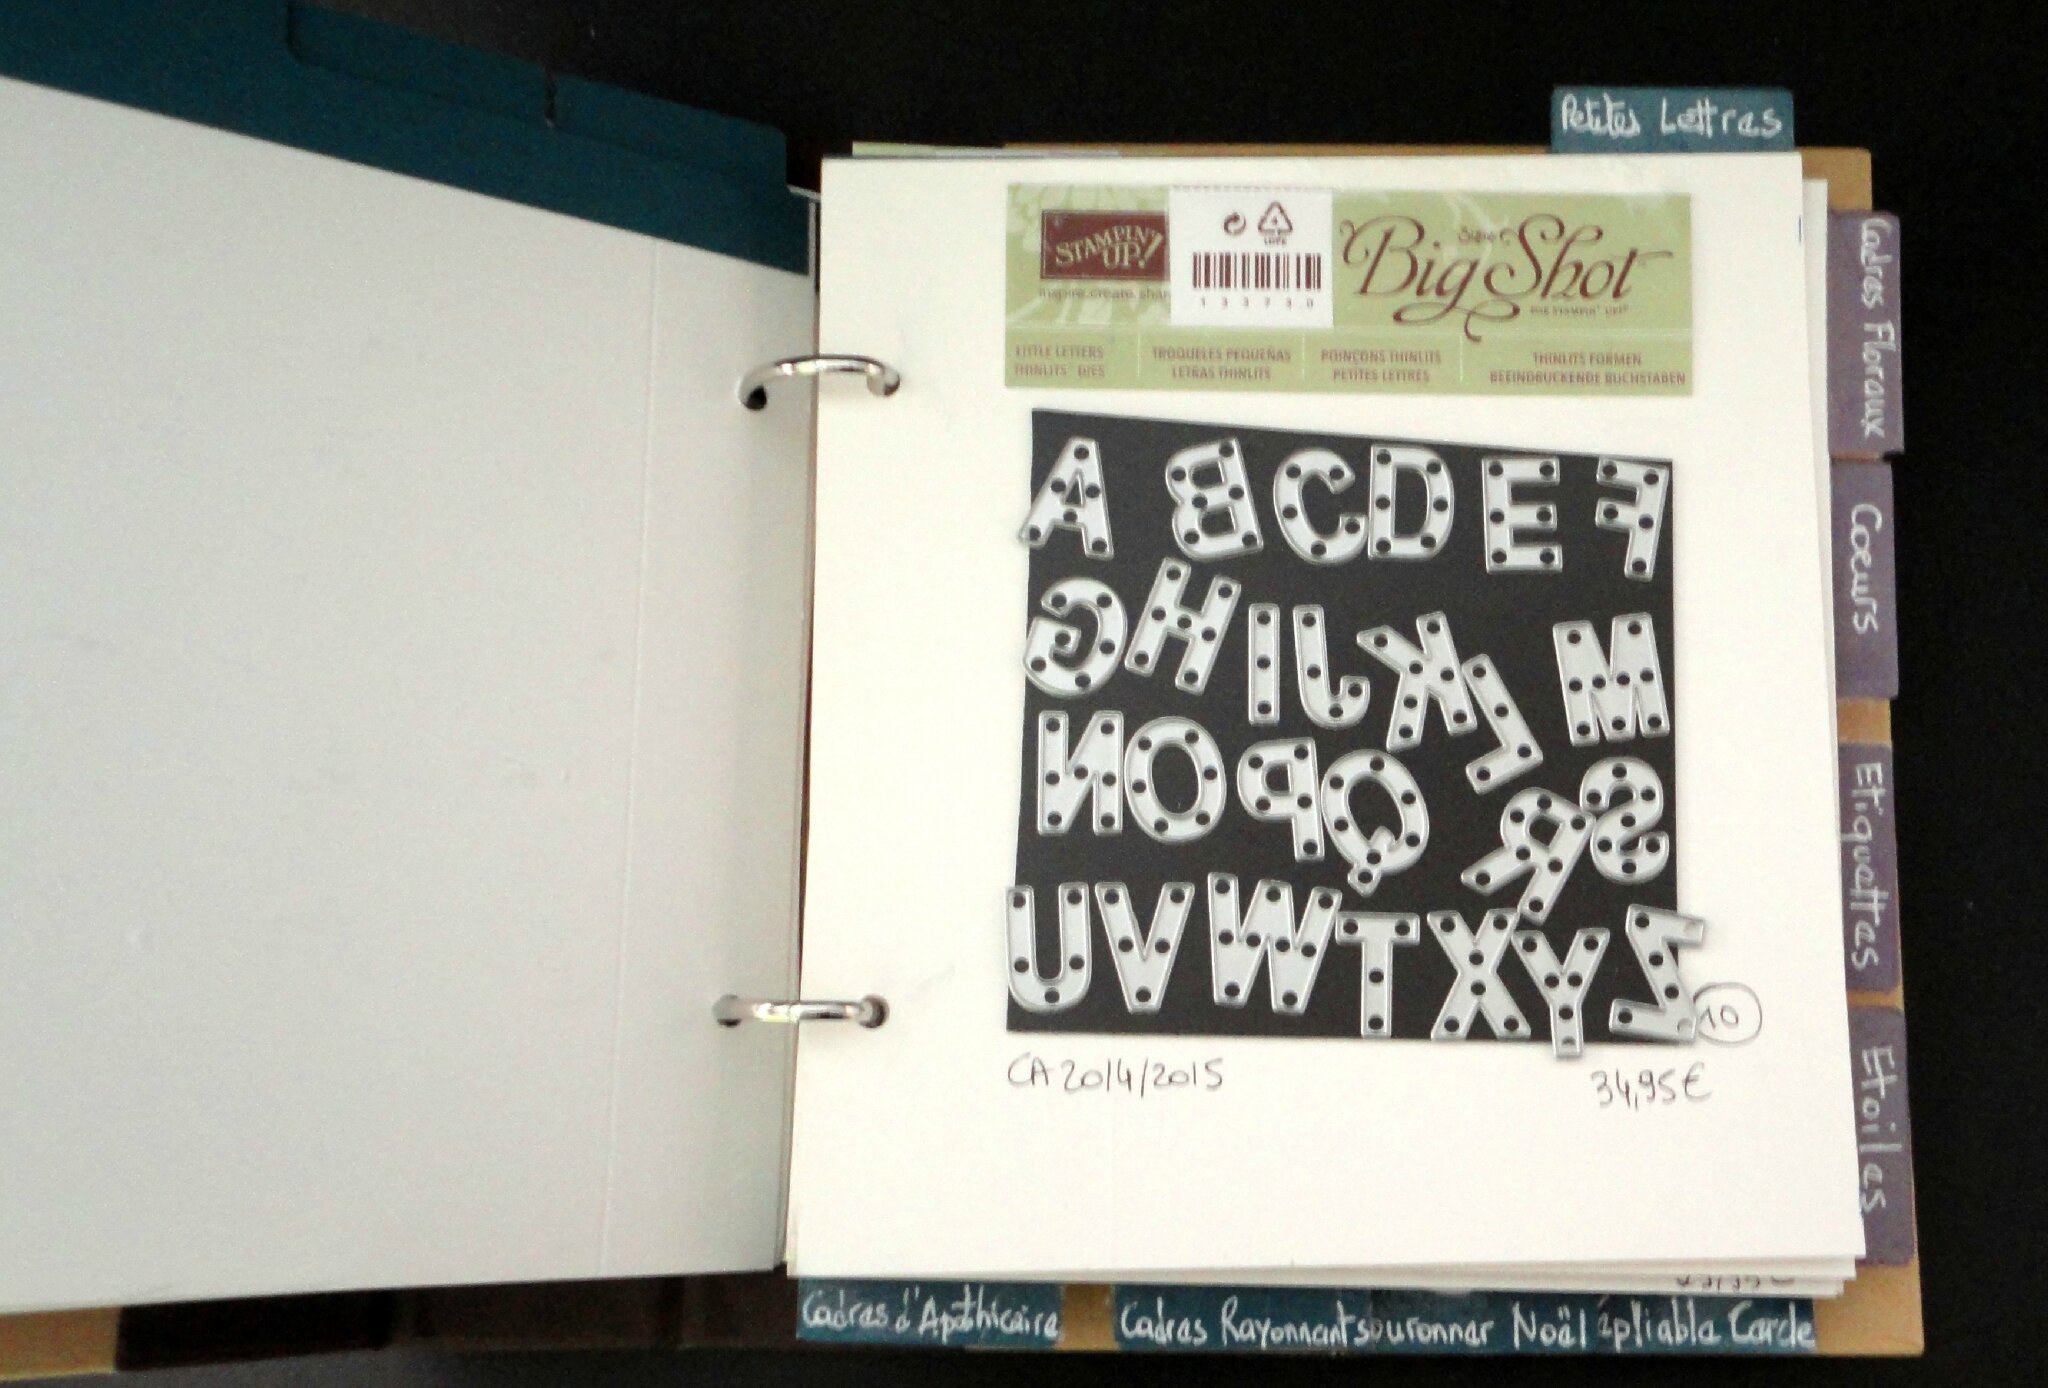 Petites Lettres
STAMPIN' UP!
inspire.create.shar
133730
Sizzix
Big Shot
FOR STAMPIN' UP!
LITTLE LETTERS
THINLITS™ DIES
TROQUELES PEQUEÑAS
LETRAS THINLITS
POINÇONS THINLITS
PETITES LETTRES
THINLITS FORMEN
BEEINDRUCKENDE BUCHSTABEN
A B C D E F
G H I J K L M
N O P Q R S
U V W T X Y Z
10
CA 2014/2015
34,95€
Cadres Floraux
Coeurs
Etiquettes
Etoiles
Cadres d'Apothicaire
Cadres Rayonnants
ouronner Noël
épliable Cercle